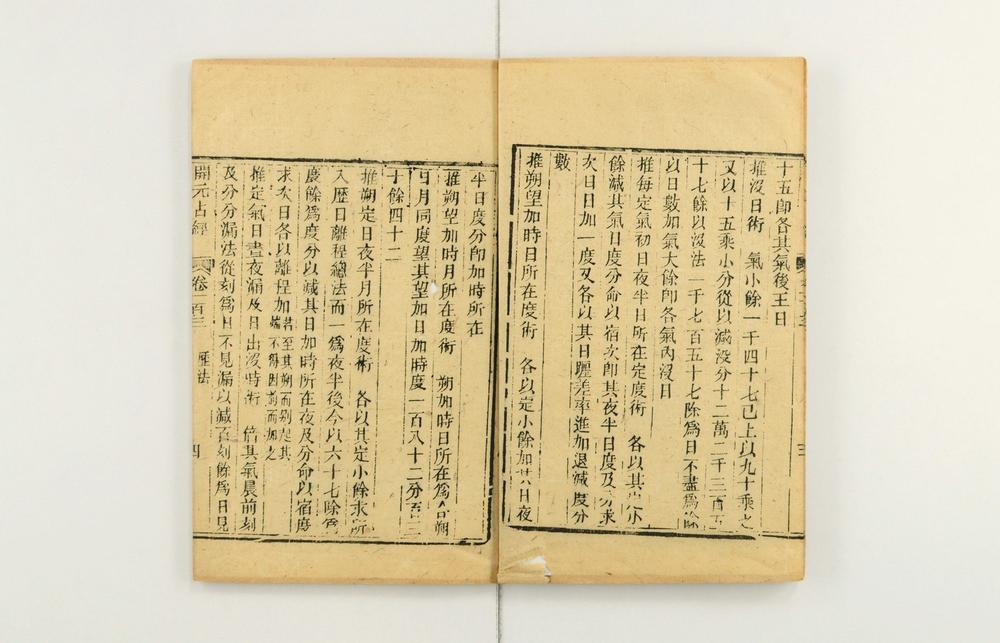 十五即各其氣後王日
推沒日術　氣小餘一千四十七已上以九十乘之
又以十五乘小分從以減沒分十二萬二千三百五
十七餘以沒法一千七百五十七除爲日不盡爲餘
以日數加氣大餘即各氣內沒日
推每定氣初日夜半日所在定度術　各以其小
餘減其氣日度分命以宿次即其夜半日度及分求
次日日加一度又各以其日躔差率進加退減度分
數
推朔望加時日所在度術　各以定小餘加其日夜
半日度分即加時所在
推朔望加時月所在度術　朔加時日所在爲合朔
日月同度望其望加日加時度一百八十二分
十餘四十二
推朔定日夜半月所在度術　各以其定小餘求所
入歷日離程總法而一爲夜半後今以六十七除爲
度餘爲度分以減其日加時所在夜及分命以宿度
求次日各以離程加若至其朔而別起其端不得因前而加之
推定氣日晝夜漏及日出沒時術　倍其氣晨前刻
及分分漏法從刻爲日不見漏以減百刻餘爲日見
開元占經　卷一百三　歷法　四